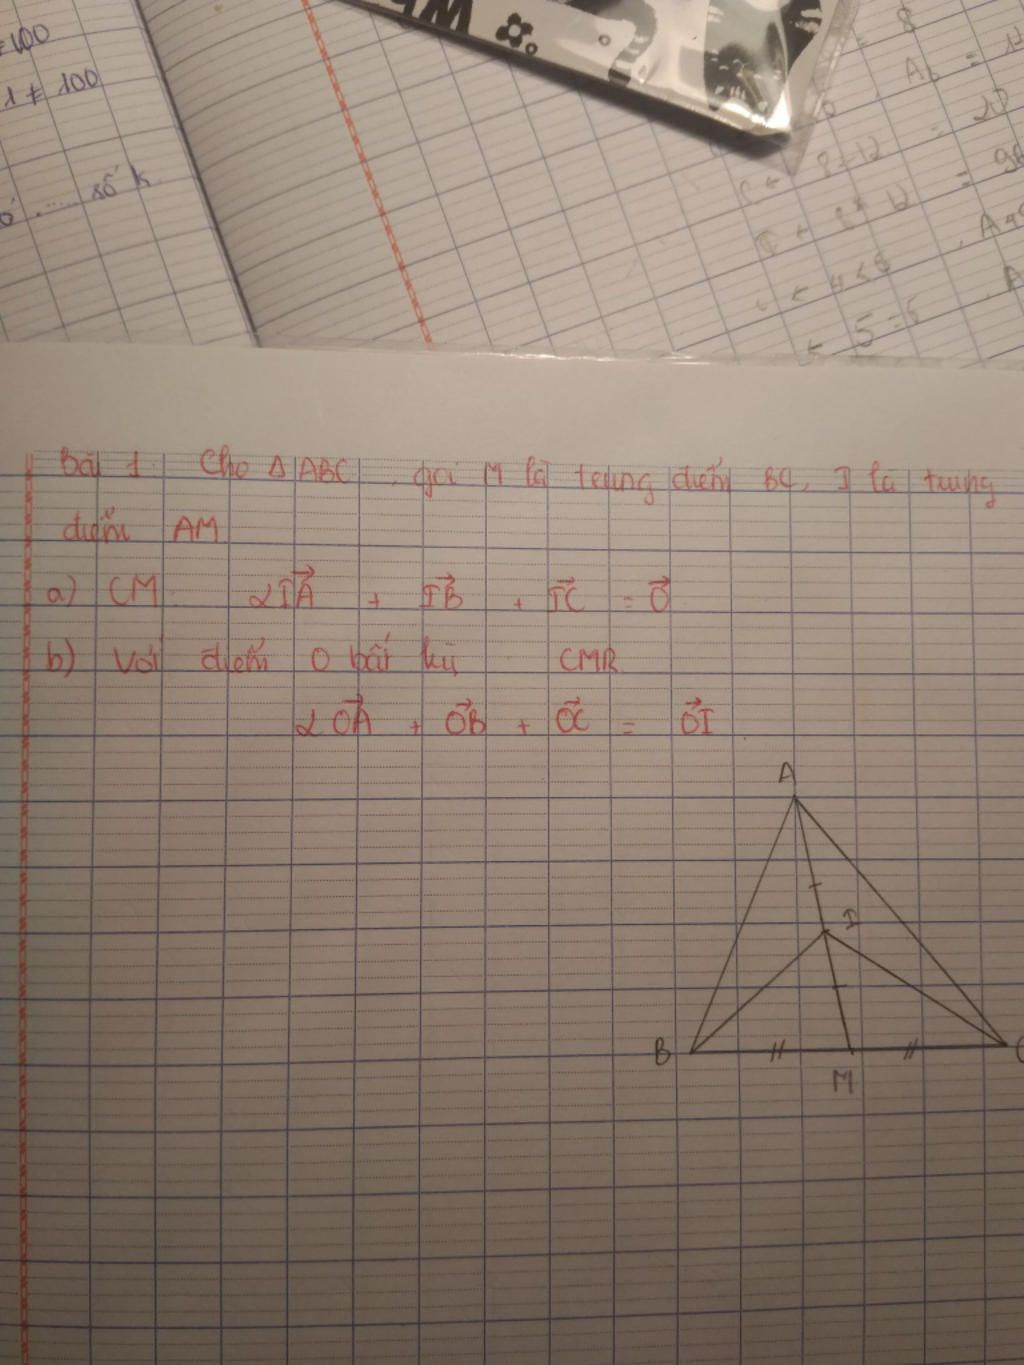 ≠ 100
1 ≠ 100
số k
8
Ab =
8 + 12 = 20
8 * 12 = 98
< 4 < 6
5 = 5
Bài 1. Cho Δ ABC, gọi M là trung điểm BC, I là trung
điểm AM
a) CM 2IA→ + IB→ + IC→ = O→
b) Với điểm O bất kì CMR
2OA→ + OB→ + OC→ = OI→
A
I
B
M